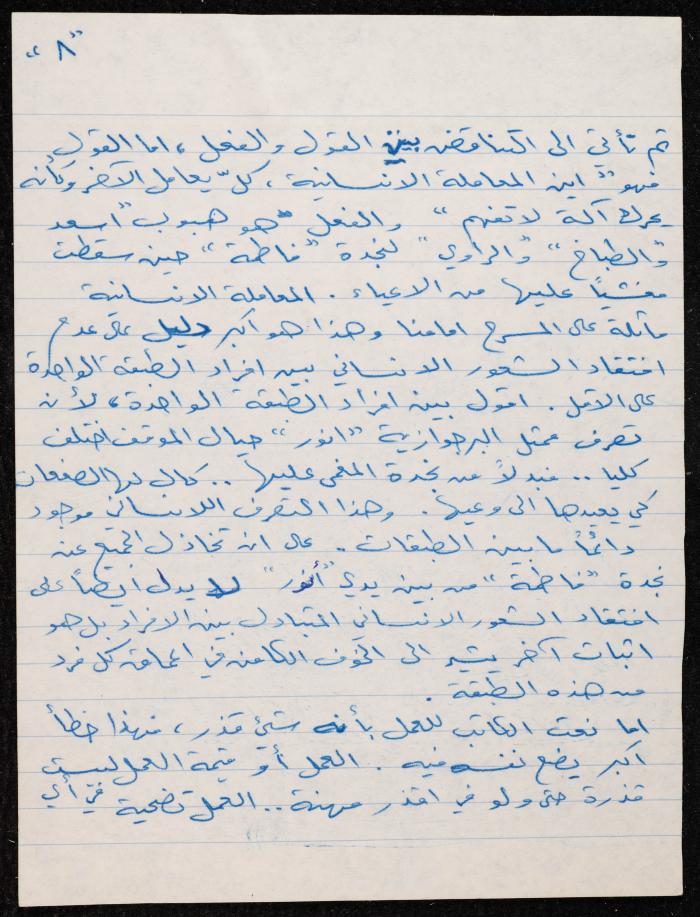 "٨"
ثم نأتي الى التناقض بين القول والفعل، اما القول
فهو "اين المعاملة الانسانية، كلّ يعامل الآخر وكأنه
يحرك آلة لا تفهم" والفعل هو هبوب "اسعد
والطباخ" "والراوي" لنجدة "فاطمة" حين سقطت
مغشيًا عليها من الاعياء. المعاملة الانسانية
ماثلة على المسرح امامنا وهذا هو اكبر دليل على عدم
افتقاد الشعور الانساني بين افراد الطبقة الواحدة
على الاقل. اقول بين افراد الطبقة الواحدة، لأن
تصرف ممثل البرجوازية "انور" حيال الموقف اختلف
كليا.. فبدلاً من نجدة المغمى عليها.. كال لها الصفعات
كي يعيدها الى وعيها. وهذا التصرف اللانساني موجود
دائماً ما بين الطبقات. على ان تخاذل الجميع عن
نجدة "فاطمة" من بين يدي "أنور" لا يدل ايضاً على
افتقاد الشعور الانساني المتبادل بين الافراد بل هو
اثبات آخر يشير الى الخوف الكامن في اعماق كل فرد
من هذه الطبقة.
اما نعت الكاتب للعمل بأنه شيء قذر، فهذا خطأ
اكبر يضع نفسه فيه. العمل أو قيمة العمل ليست
قذرة حتى ولو في اقذر مهنة.. العمل تضحية في أي